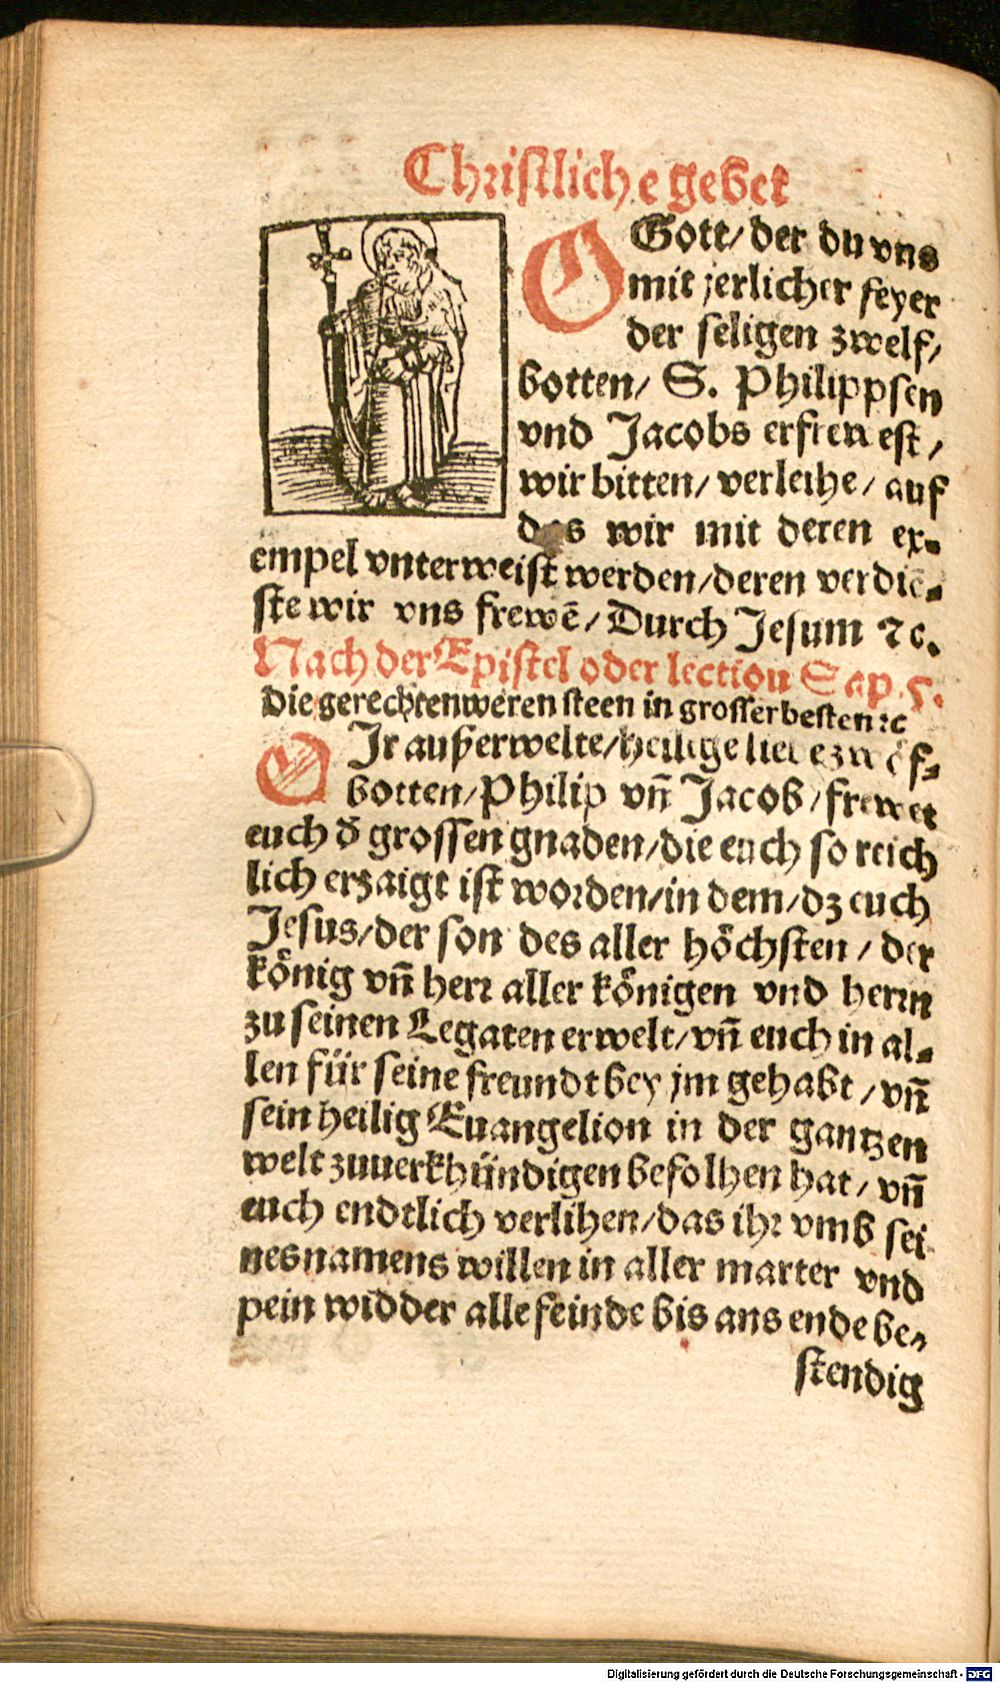 Christliche gebet
O Gott/ der du vns
mit jerlicher feyer
der seligen zwelf/
botten/ S. Philippsen
vnd Jacobs erfrewest/
wir bitten/ verleihe/ auf
das wir mit deren ex⸗
empel vnterweist werden/deren verdiē⸗
ste wir vns frewē/ Durch Jesum ⁊c.
Nach der Epistel oder lection Sap. 5.
Die gerechten weren steen in grosser besten ⁊c
O Jr außerwelte/heilige liebe zwölf⸗
botten/Philip vñ Jacob/frewet
euch ď grossen gnaden/die euch so reich
lich erzaigt ist worden/in dem/dz euch
Jesus/der son des aller höchsten/ der
könig vñ herr aller königen vnd herrn
zu seinen Legaten erwelt/vñ euch in al⸗
len für seine freundt bey jm gehabt/vñ
sein heilig Euangelion in der gantzen
welt zuuerkhündigen befolhen hat/ vñ
euch endtlich verlihen/das ihr vmb sei
nes namens willen in aller marter vnd
pein widder alle feinde bis ans ende be⸗
stendig
Digitalisierung gefördert durch die Deutsche Forschungsgemeinschaft - DFG